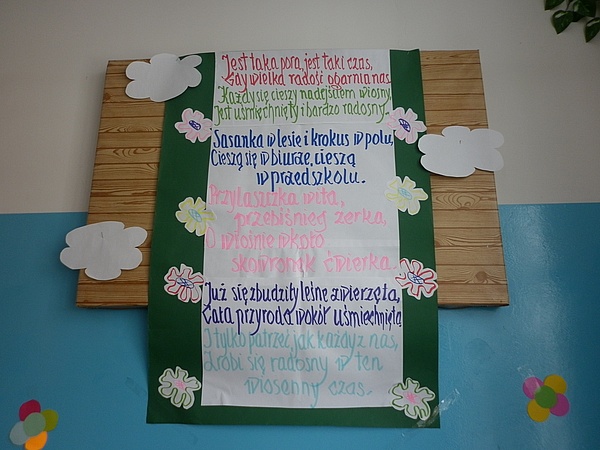 Jest taka pora, jest taki czas,
Gdy wielka radość ogarnia nas.
Każdy się cieszy nadejściem wiosny,
Jest uśmiechnięty i bardzo radosny.
Sasanka w lesie i krokus w polu,
Cieszą się w biurze, cieszą
w przedszkolu.
Przylaszczka wita,
przebiśnieg zerka,
O wiośnie wkoło
skowronek ćwierka.
Już się zbudziły leśne zwierzęta,
Cała przyroda wokół uśmiechnięta
I tylko patrzeć, jak każdy z nas,
Zrobi się radosny w ten
wiosenny czas.